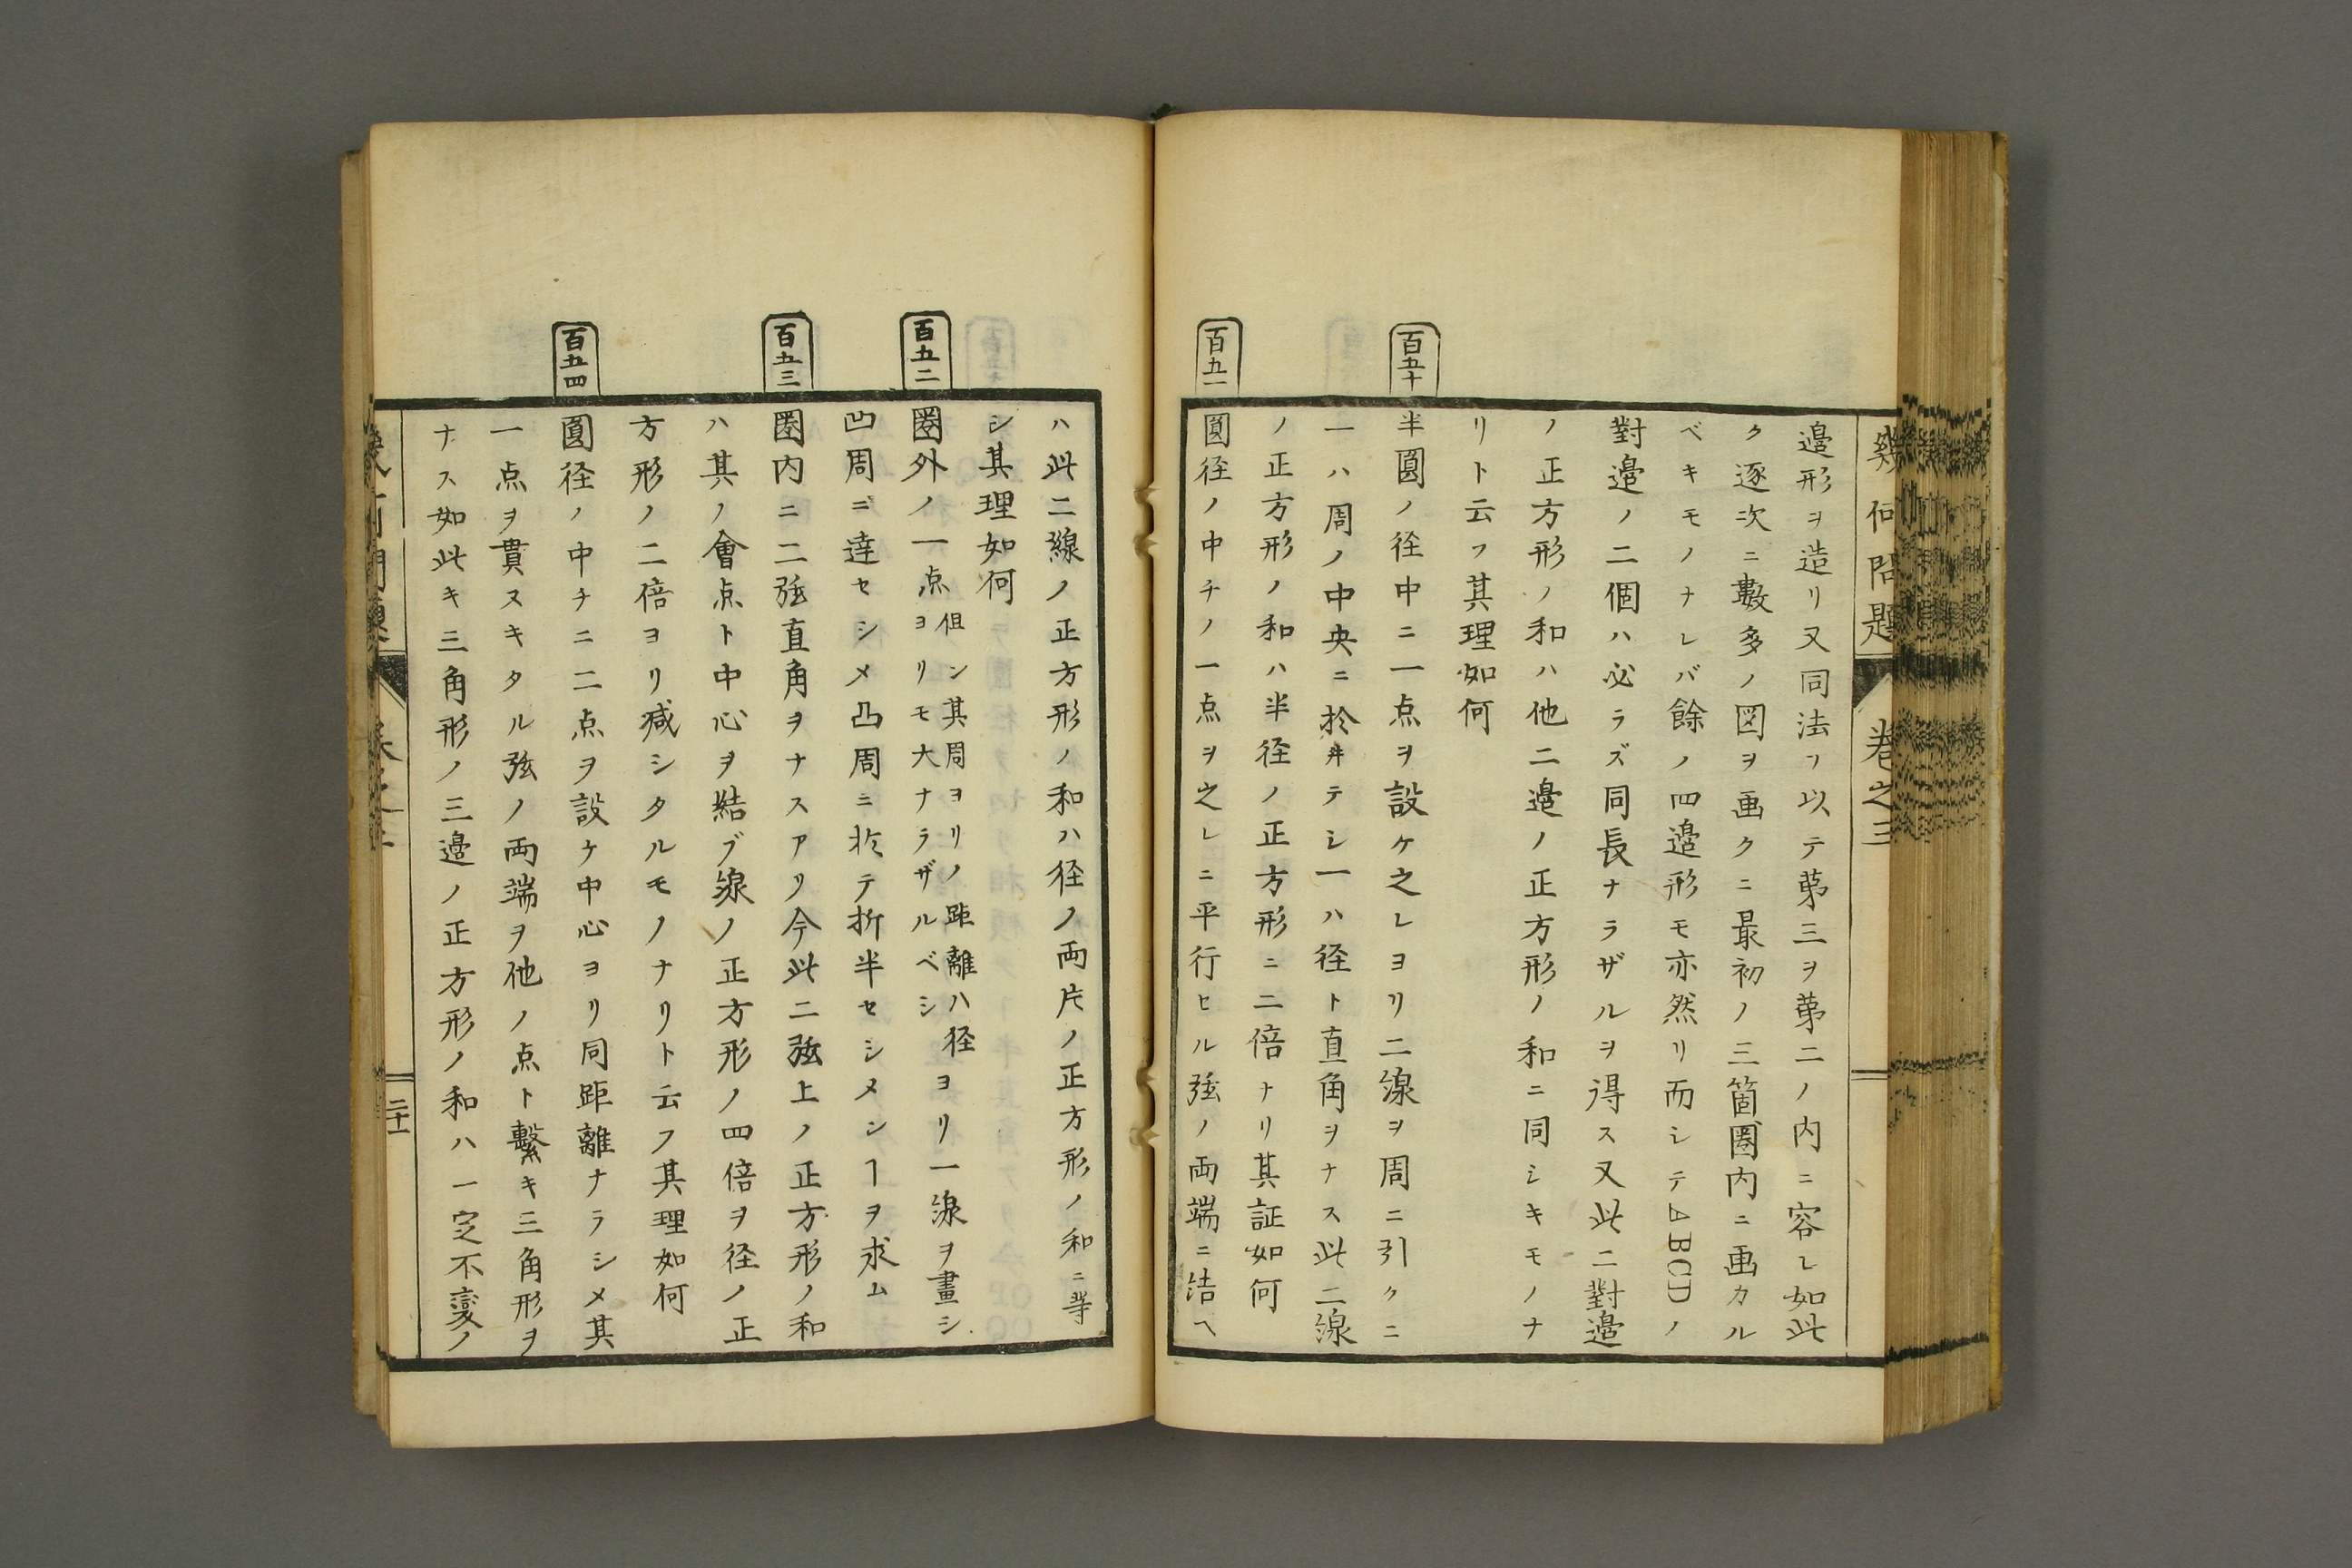 幾何問題
卷之三
邉形ヲ造リ又同法ヲ以テ苐三ヲ苐二ノ内ニ容レ如此
ク逐次ニ數多ノ図ヲ画クニ最初ノ三箇圏内ニ画カル
ベキモノナレバ餘ノ四邉形モ亦然リ而シテABCDノ
對邉ノ二個ハ必ラズ同長ナラザルヲ得ス又此二對邉
ノ正方形ノ和ハ他二邉ノ正方形ノ和ニ同シキモノナ
リト云フ其理如何
百五十
半圓ノ径中ニ一点ヲ設ケ之レヨリ二線ヲ周ニ引クニ
一ハ周ノ中央ニ於ヰテシ一ハ径ト直角ヲナス此二線
ノ正方形ノ和ハ半径ノ正方形ニ二倍ナリ其証如何
百五一
圓径ノ中チノ一点ヲ之レニ平行ヒル弦ノ両端ニ結ヘ
ハ此二線ノ正方形ノ和ハ径ノ両片ノ正方形ノ和ニ等
シ其理如何
百五二
圏外ノ一点ヨリ一線ヲ畫シ
但シ其周ヨリノ距離ハ径
ヨリモ大ナラザルベシ
凹周ニ達セシメ凸周ニ於テ折半セシメンヿヲ求ム
百五三
圏内ニ二弦直角ヲナスアリ今此二弦上ノ正方形ノ和
ハ其ノ會点ト中心ヲ結ブ線ノ正方形ノ四倍ヲ径ノ正
方形ノ二倍ヨリ减シタルモノナリト云フ其理如何
百五四
圓径ノ中チニ二点ヲ設ケ中心ヨリ同距離ナラシメ其
一点ヲ貫ヌキタル弦ノ両端ヲ他ノ点ト繫キ三角形ヲ
ナス如此キ三角形ノ三邉ノ正方形ノ和ハ一定不変ノ
二十一